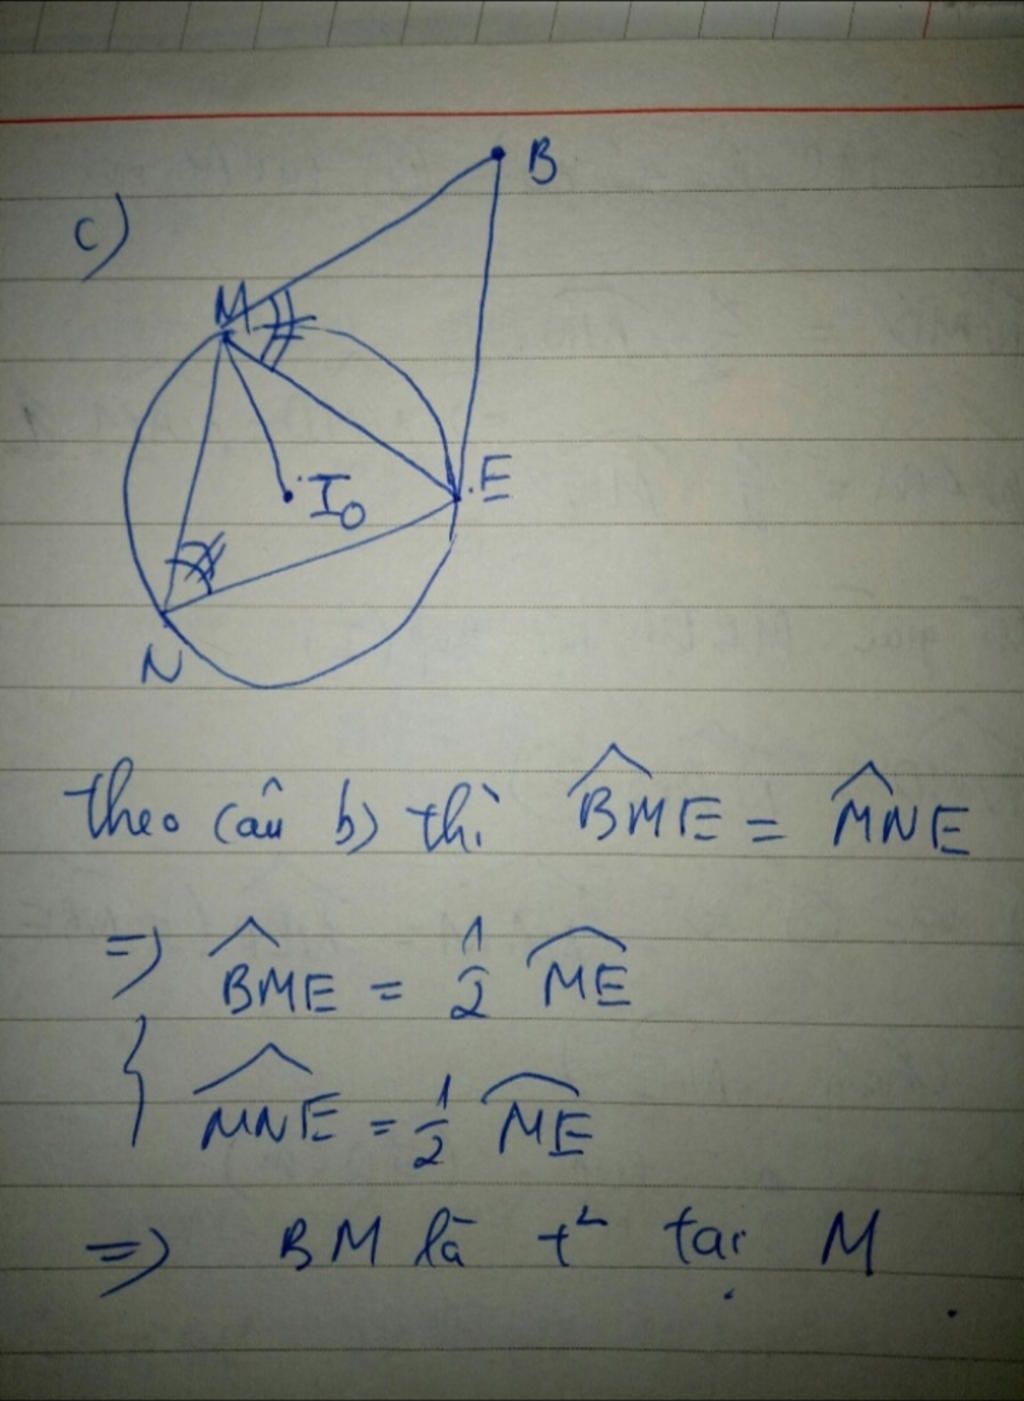 c)
B
M
I₀
E
N
theo câu b) thì \widehat{BME} = \widehat{MNE}
=> \widehat{BME} = 1/2 \overset{\frown}{ME}
{ \widehat{MNE} = 1/2 \overset{\frown}{ME}
=> BM là t² tại M.